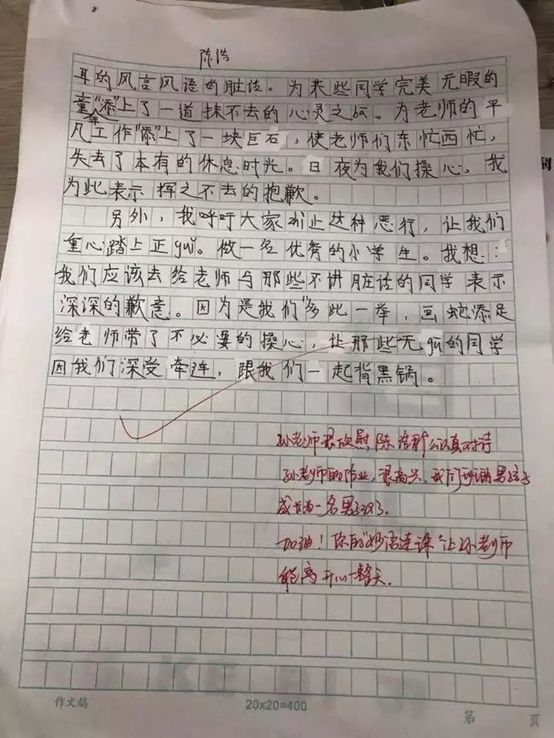 陈浩
耳的风言风语的脏话。为某些同学完美无暇的
童年“添”上了一道抹不去的心灵之ba。为老师的平
凡工作“添”上了一块巨石,使老师们东忙西忙,
失去了本有的休息时光。日夜为我们操心,我
为此表示挥之不去的抱歉。
另外,我呼吁大家制止这种恶行,让我们
重心踏上正gui。做一名优秀的小学生。我想:
我们应该去给老师与那些不讲脏话的同学表示
深深的歉意。因为是我们“多此一举,画蛇添足
给老师带了不必要的操心,让那些无gu的同学
因我们深受牵连,跟我们一起背黑锅。
孙老师很欣慰,陈浩那么认真对待
孙老师的作业,很高兴,我们班的男孩子
成长为一名男子汉了。
加油!你的“妙语连珠”让孙老师
能高开心一整天.
作文稿
20x20=400
第 页